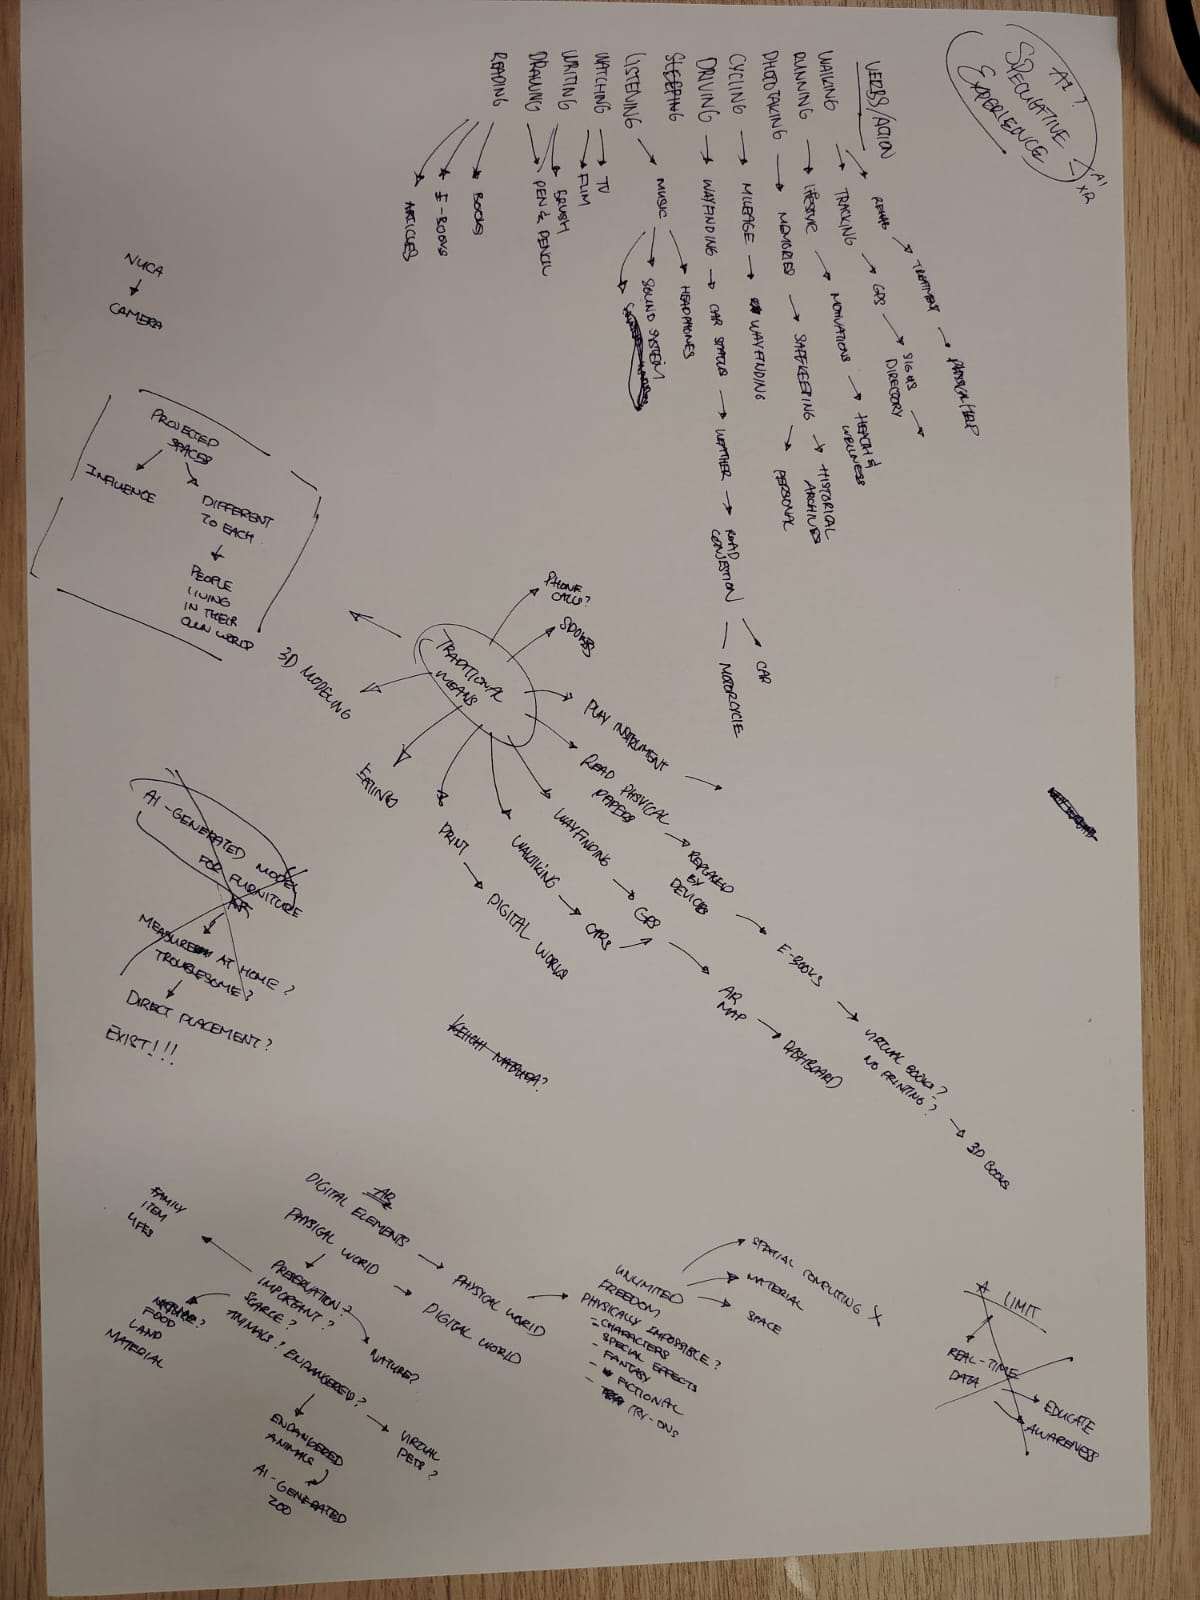 AI?
SPECULATIVE
EXPERIENCE
AI
XR
VERBS/ACTION
WALKING
REHAB → TREATMENT → PHYSICAL HELP
TRACKING → GPS → SIGNS
DIRECTORY →
RUNNING → LIFESTYLE → MOTIVATIONS → HEALTH &
WELLNESS
PHOTOTAKING → MEMORIES → SAFEKEEPING → HISTORICAL
ARCHIVES
PERSONAL
CYCLING → MILEAGE → WAYFINDING
DRIVING → WAYFINDING → CAR STATUS → WEATHER → ROAD
CONGESTION
CAR
MOTORCYCLE
SLEEPING
LISTENING → MUSIC → HEADPHONES
SOUND SYSTEM
WATCHING → TV
FILM
WRITING
DRAWING
BRUSH
PEN & PENCIL
READING
BOOKS
E-BOOKS
ARTICLES
NUCA
CAMERA
PROJECTED
SPACES
INFLUENCE
DIFFERENT
TO EACH
PEOPLE
LIVING
IN THEIR
OWN WORLD
TRADITIONAL
MEANS
PHONE
CALLS?
PLAY INSTRUMENT →
READ PHYSICAL
PAPERS
REPLACED
BY
DEVICES
E-BOOKS
VIRTUAL BOOKS?
NO PRINTING?
3D BOOKS
WAYFINDING → GPS → AR
MAP → DASHBOARD
WALKING → CARS →
PRINT → DIGITAL WORKS
EATING
3D MODELING
AI-GENERATED MODEL
FOR FURNITURE
MEASURE AT HOME?
TROUBLESOME?
DIRECT PLACEMENT?
EXIST!!!
KEIICHI MATSUDA?
AR
DIGITAL ELEMENTS → PHYSICAL WORLD
PHYSICAL WORLD → DIGITAL WORLD
PRESERVATION?
IMPORTANT?
SCARCE?
ANIMALS? ENDANGERED?
FAMILY
ITEM
FOOD
LAND
MATERIAL
NATURE?
ENDANGERED
ANIMALS
AI-GENERATED
ZOO
VIRTUAL
PETS?
UNLIMITED
FREEDOM
PHYSICALLY IMPOSSIBLE?
- CHARACTERS
- SPECIAL EFFECTS
- FANTASY
- FICTIONAL
- TRY-ONS
SPATIAL COMPUTING X
MATERIAL
SPACE
LIMIT
REAL-TIME
DATA
EDUCATE
AWARENESS